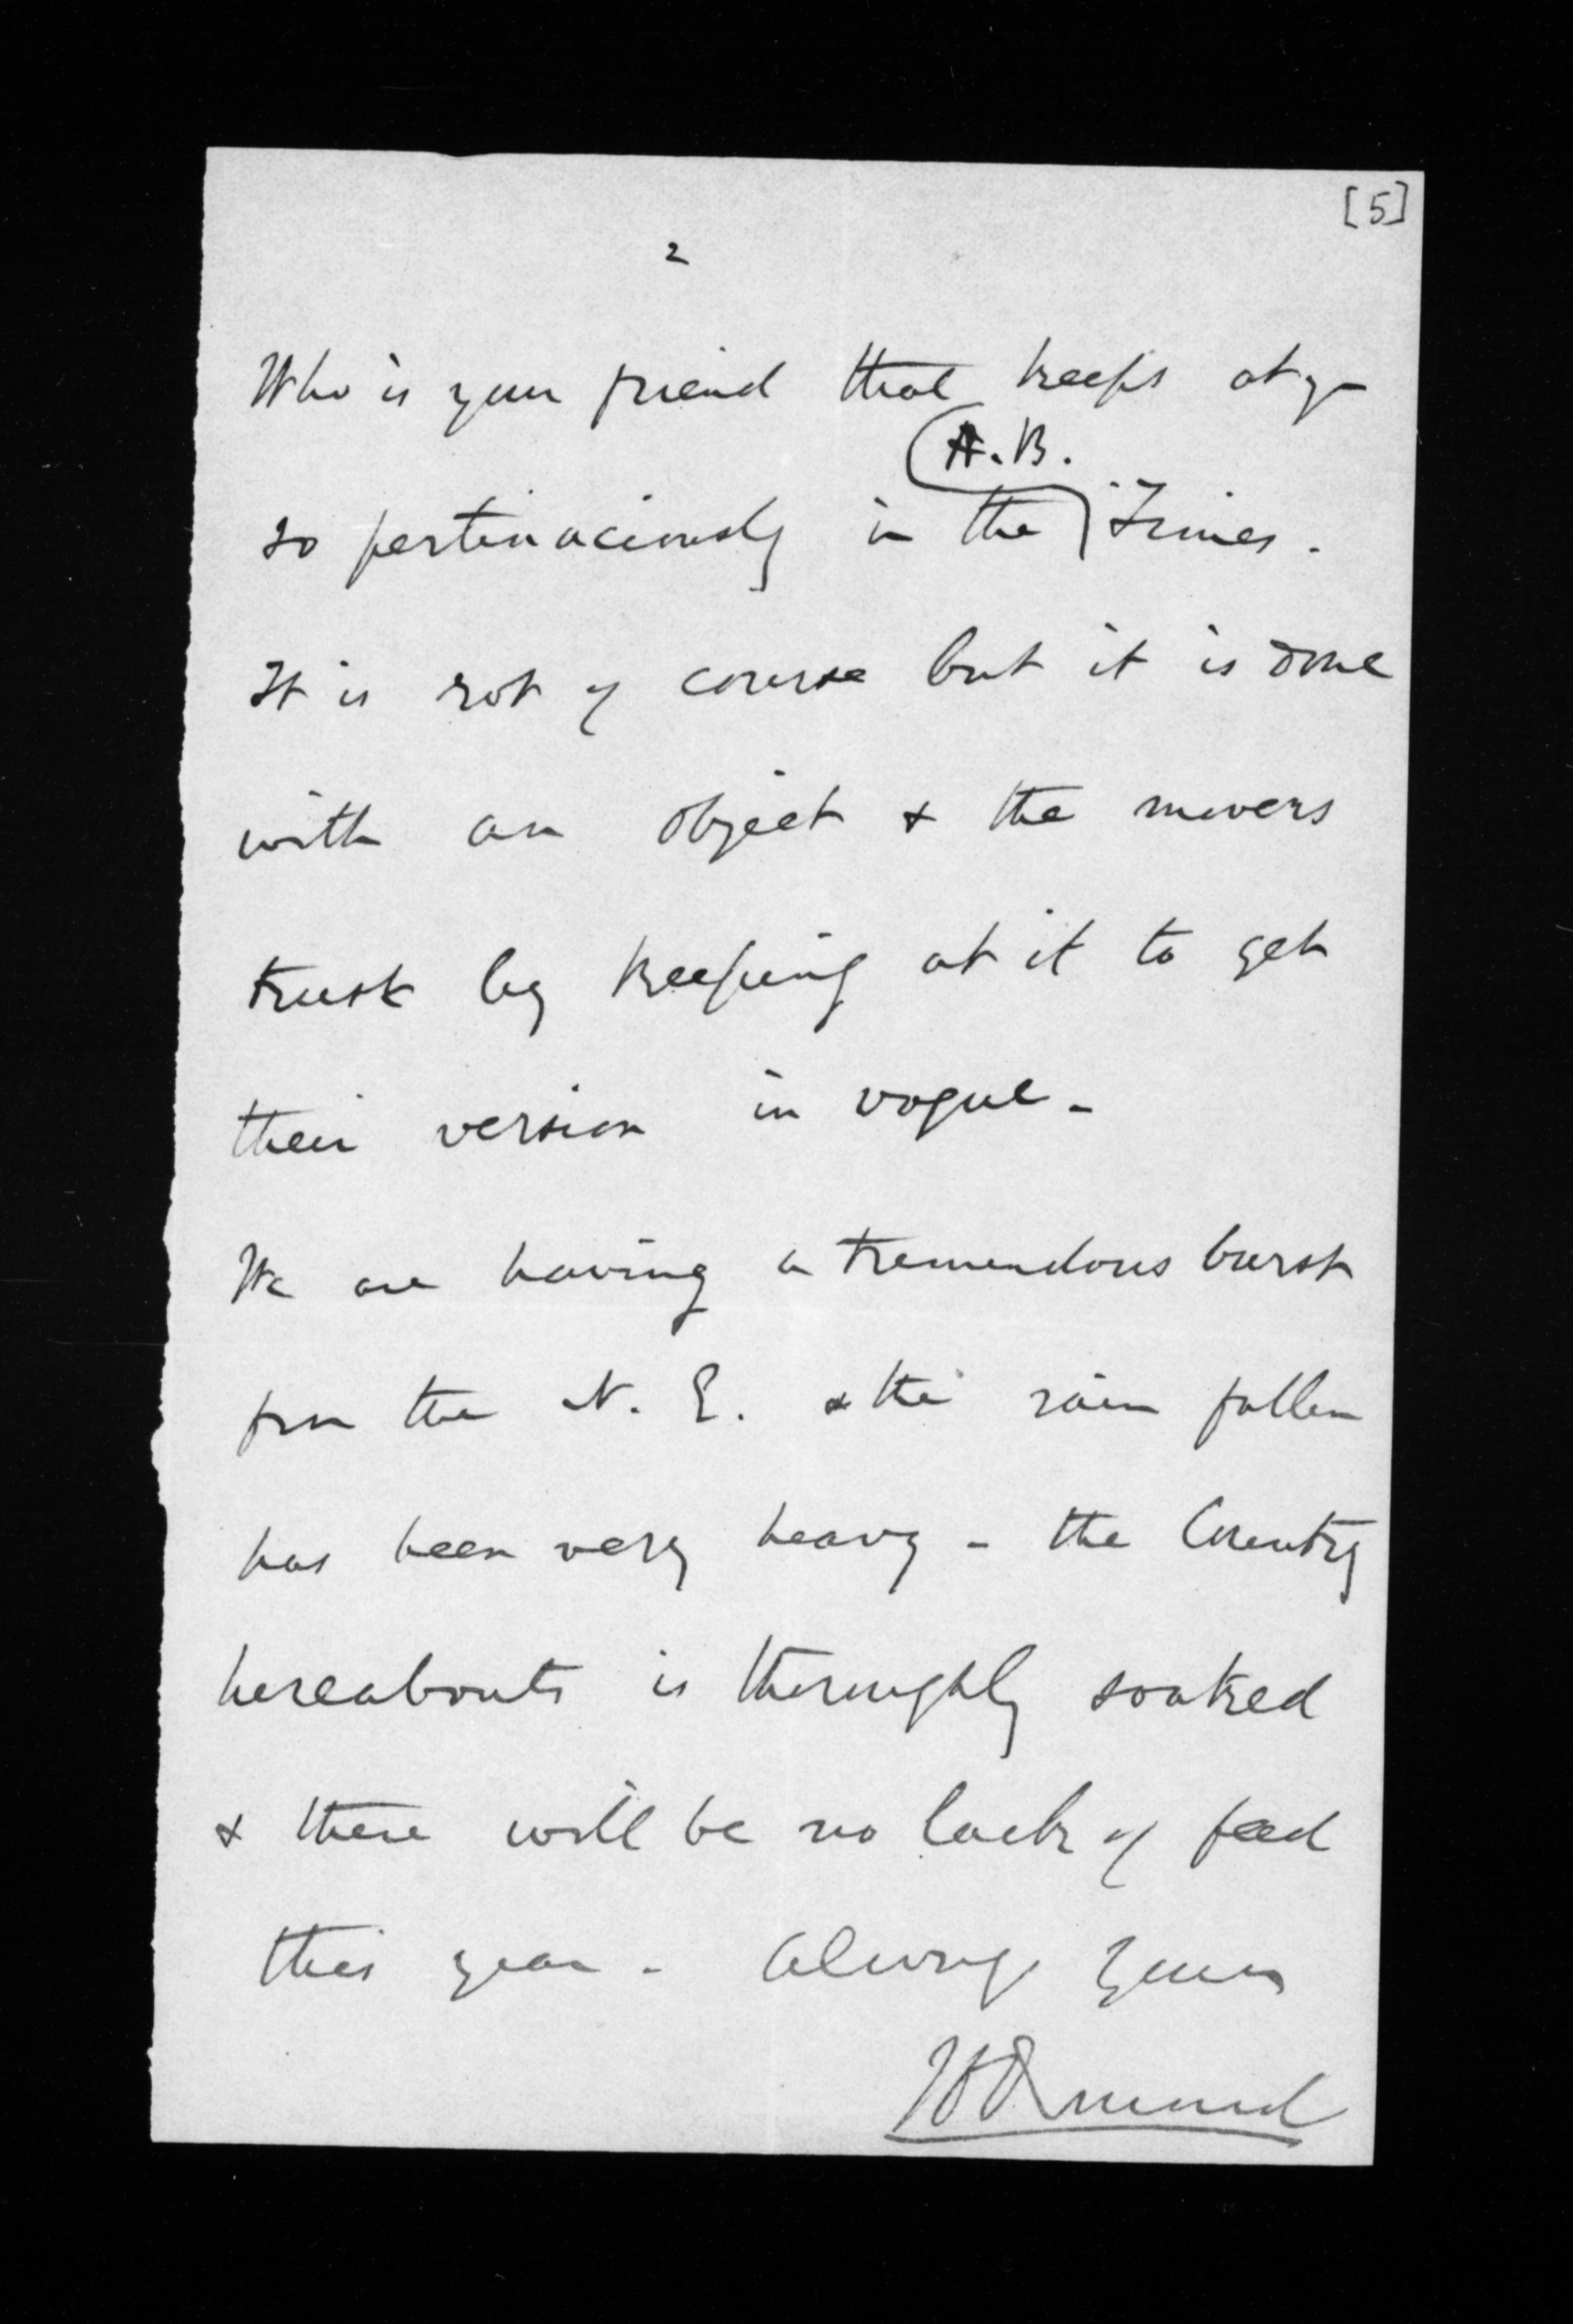 [5]
2
Who is your friend that keeps at you
A.B.
so pertinaciously in the Times.
It is rot of course but it is done
with an object & the movers
trust by keeping at it to get
their version in vogue -
We are having a tremendous burst
from the N. E. & the rain fallen
has been very heavy - the Country
hereabouts is thoroughly soaked
& there will be no lack of feed
this year - Always Yours
WDrmond